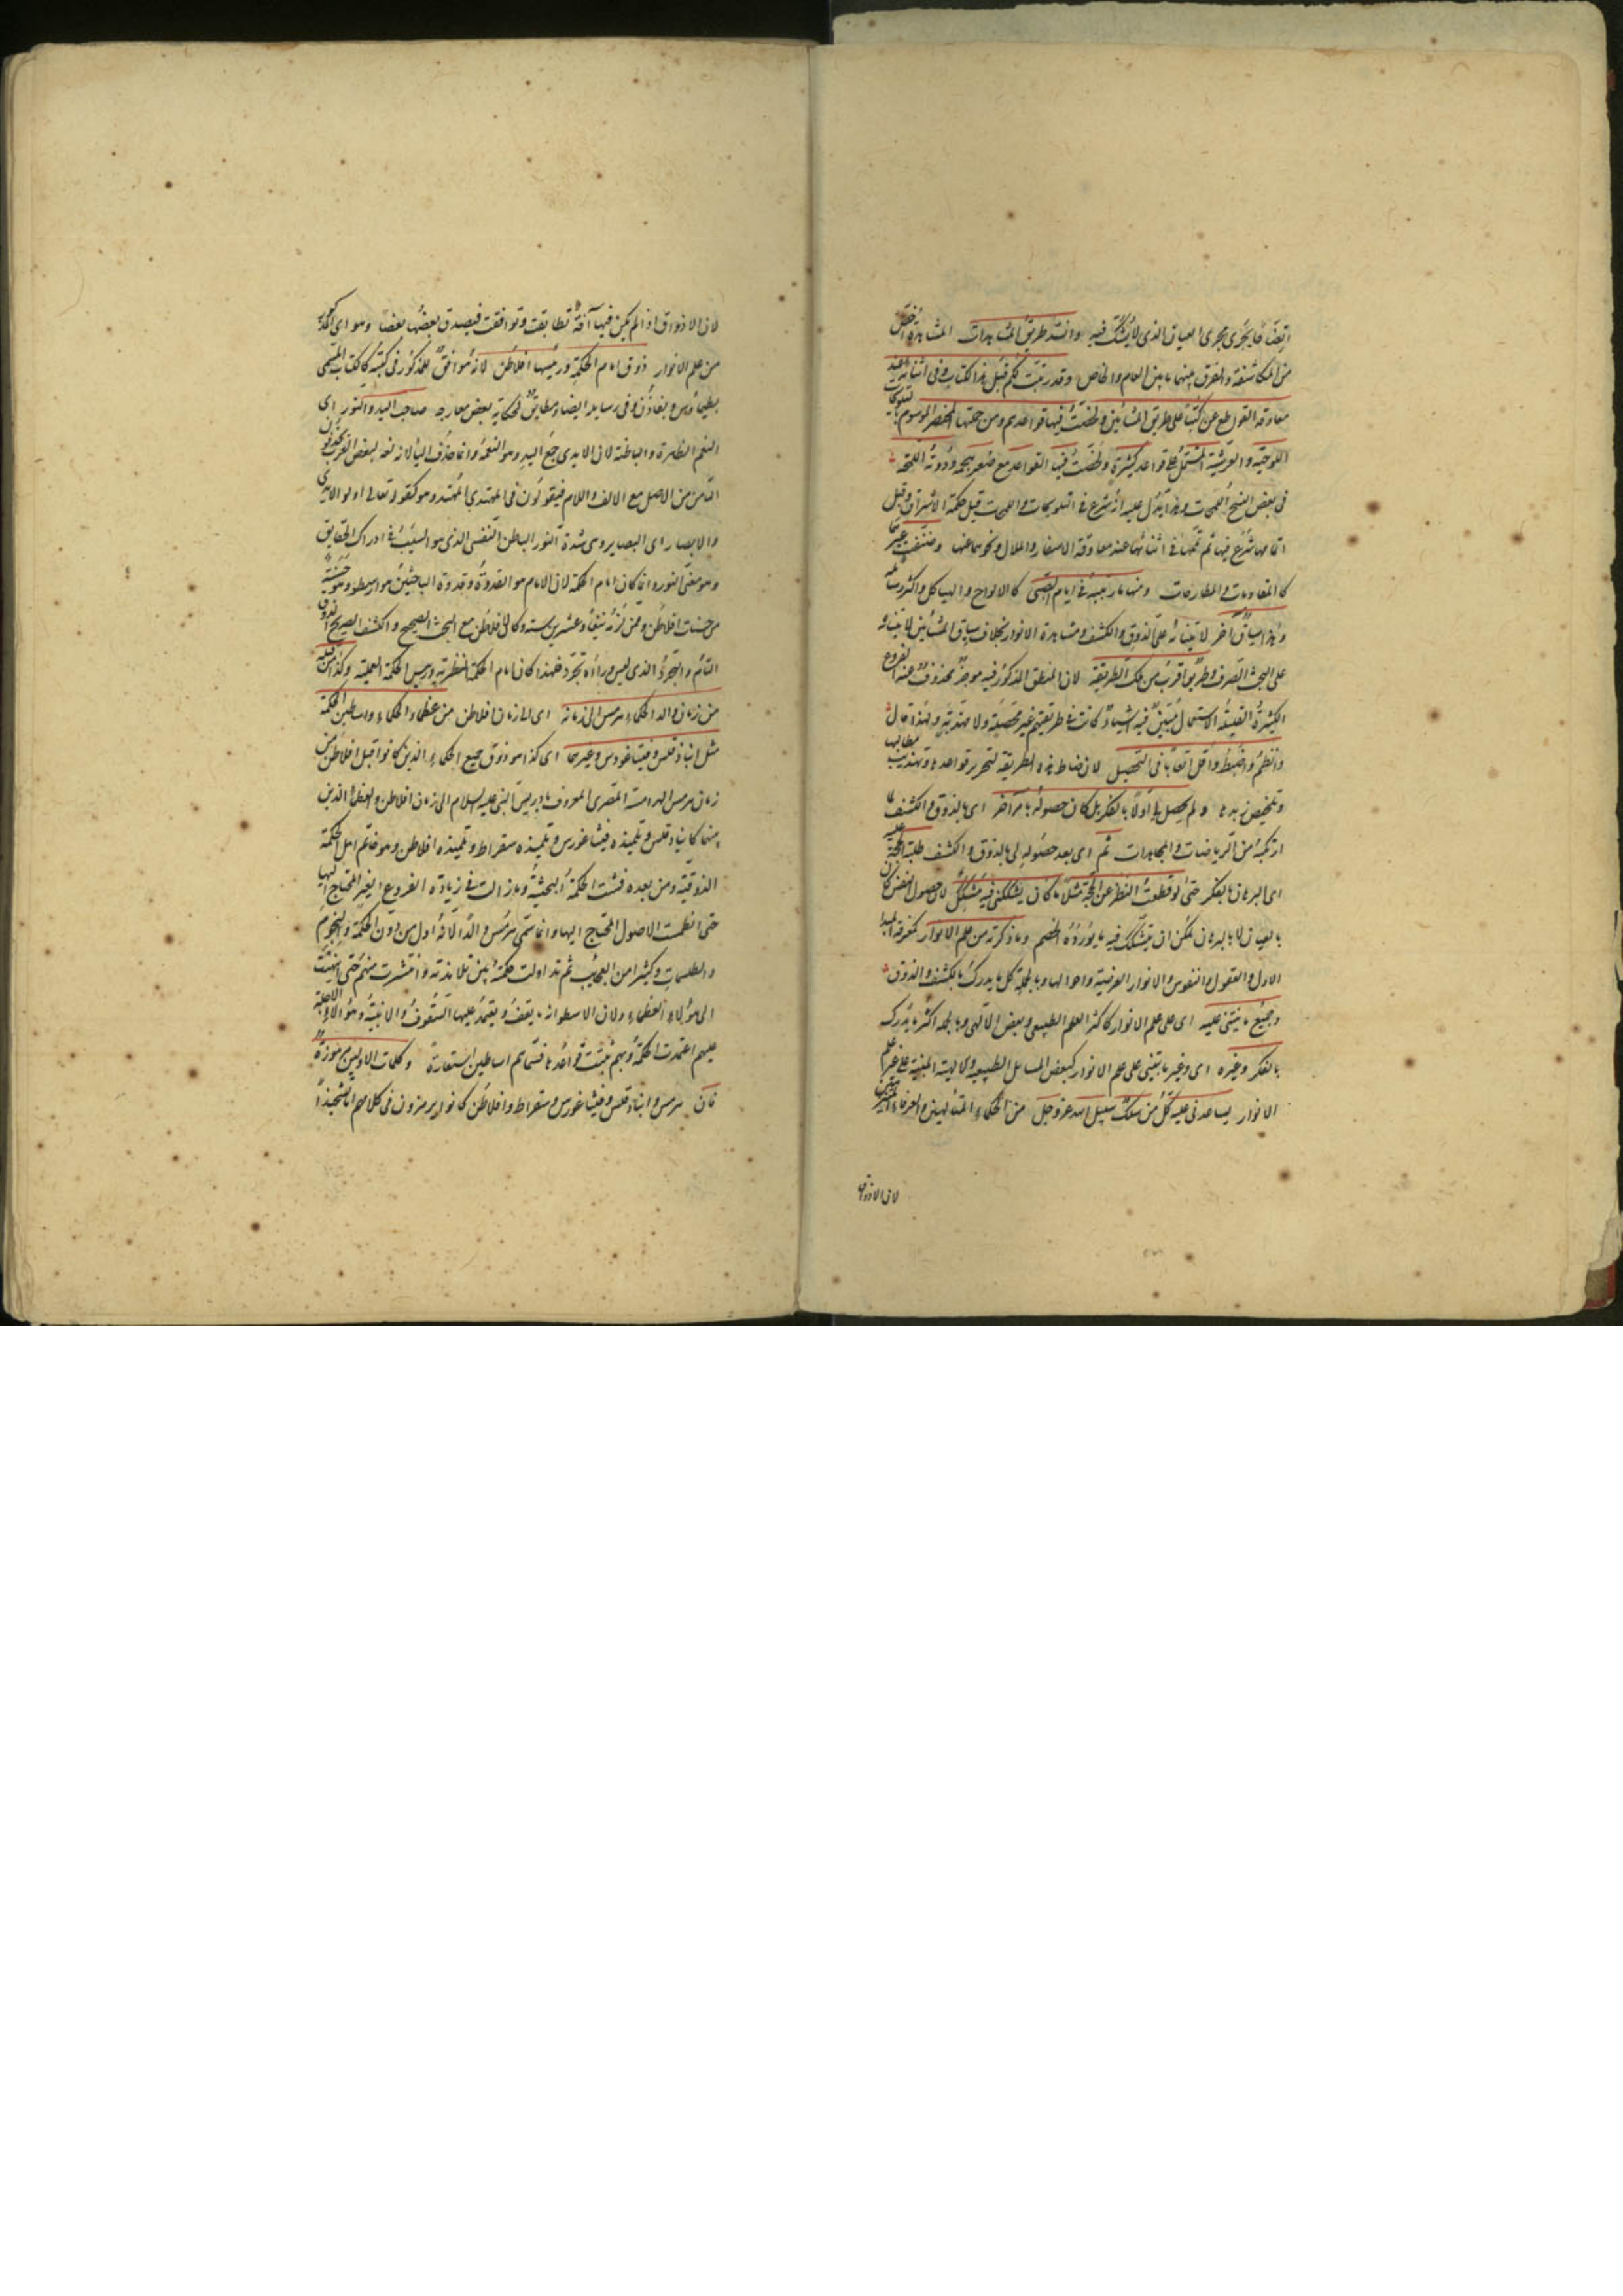 ايضا ما يجرى مجرى العيان الذى لا يشك فيه وانت طريق المشاهدات المشاهدة اخص
من المكاشفة والفرق بينهما ما بين العام والخاص وقد رتبت لكم قبل هذا الكتاب وفى اثنائه عند
معاوقة القواطع عن كتبا على طريق المشائين ولخصت فيها قواعدهم ومن جملتها المختصر الموسوم بالتلويحات
اللوحية والعرشية المشتمل على قواعد كثيرة ولخصت فيها القواعد مع صغر حجمه ودونه اللمحة
فى بعض النسخ اللمحات وهذا يدل عليه انه شرع فى التلويحات واللمحات قبل حكمة الاشراق وقبل
اتمامها شرع فيها ثم تممها فى اثنائها عند معاوقة الاسفار والملال ونحوهما عنها وصنفت غيرهما
كالمقاومات والمطارحات ومنها ما رتبته فى ايام الصبى كالالواح والهياكل واكثر رسائله
وهذا سياق آخر لابتنائه على الذوق والكشف ومشاهدة الانوار بخلاف سياق المشائين لابتنائه
على البحث الصرف وطريق اقرب من تلك الطريقة لان المنطق المذكور فيه موجز محذوف عنه الفروع
الكثيرة القليلة الاستعمال مبين فيه اشياء كانت فى طريقتهم غير محصلة ولا مهذبة ولهذا قال
وانظم واضبط واقل اتعابا فى التحصيل لانضباط هذه الطريقة لتحرير قواعدها وتهذيب مطالبها
وتلخيص زبدها ولم يحصل لى اولا بالفكر بل كان حصوله بامر آخر اى بالذوق والكشف لما
ارتكبه من الرياضات والمجاهدات ثم اى بعد حصوله لى بالذوق والكشف طلبت الحجة عليه
اى البرهان بالفكر حتى لو قطعت النظر عن الحجة مثلا ما كان يشككنى فيه مشكك لان حصول اليقين كان
بالعيان لا بالبرهان ليمكن ان يتشكك فيه بما يورده الخصم وما ذكرته من علم الانوار كمعرفة المبدا
الاول والعقول والنفوس والانوار العرضية واحوالها وبالجملة كل ما يدرك بالكشف والذوق
وجميع ما يبتنى عليه اى على علم الانوار كاكثر العلم الطبيعى وبعض الالهى وبالجملة اكثر ما يدرك
بالفكر وغيره اى وغير ما يبتنى على علم الانوار كبعض المسائل الطبيعية والالهية المبنية على غير علم
الانوار يساعدنى عليه كل من سلك سبيل الله عز وجل من الحكماء المتألهين والعرفاء
لان الاذواق
لان الاذواق اذا لم يكن فيها آفة تطابقت وتوافقت فيصدق بعضها بعضا وهو اى المذكور
من علم الانوار ذوق امام الحكمة ورئيسها افلاطن لانه موافق للمذكور فى كتبه كالكتاب المسمى
بطيماوس وبفاذن وفى رسايله ايضا ومطابق لحكاية بعض معارجه صاحب الايد والنور اى
النعم الظاهرة والباطنة لان الايدى جمع اليد وهو النعمة وانما حذف اليا لانه لغة لبعض العرب يحذفون
اليا من من الاصل مع الالف واللام فيقولون فى المهتدى المهتد وهو كقوله تعالى اولوا الايدى
والابصار اى البصاير وهى شدة النور الباطن النفسى الذى هو السبب فى ادراك الحقايق
وهو معنى النور وانما كان امام الحكمة لان الامام هو القدوة وقدوة الباحثين هو ارسطو وهو حسنة
من حسنات افلاطن وممن لزمه نيفا وعشرين سنة وكان افلاطن مع البحث الصحيح والكشف الصريح الذوق
التام والتجرد الذى ليس وراءه تجرد فلهذا كان امام الحكمة النظرية ورييس الحكمة العملية وكذا من قبله
من زمان والد الحكماء هرمس الى زمانه اى الى زمان افلاطن من عظماء الحكماء واساطين الحكمة
مثل انباذقلس وفيثاغورس وغيرهما اى كذا هو ذوق جميع الحكماء الذين كانوا قبل افلاطن من
زمان هرمس الهرامسة المصرى المعروف بادريس النبى عليه السلام الى زمان افلاطن والعظماء الذين
بينهما كانباذقلس وتلميذه فيثاغورس وتلميذه سقراط وتلميذه افلاطن وهو خاتم اهل الحكمة
الذوقية ومن بعده فشت الحكمة البحثية وما زالت فى زيادة الفروع الغير المحتاج اليها
حتى انطمست الاصول المحتاج اليها وانما سمى هرمس والدا لانه اول من دون الحكمة والنجوم
والطلسمات وكثيرا من العجائب ثم تداولت حكمته بين تلامذته وانتشرت منهم حتى انتهت
الى هؤلاء العظماء ولان الاسطوانة ما يقف ويعتمد عليها السقوف والابنية وهؤلاء الاجلة
عليهم اعتمدت الحكمة وبهم ثبتت قواعدها فسماهم اساطين استعارة وكلمات الاولين مرموزة
فان هرمس وانباذقلس وفيثاغورس وسقراط وافلاطن كانوا يرمزون فى كلامهم اما تشحيذا